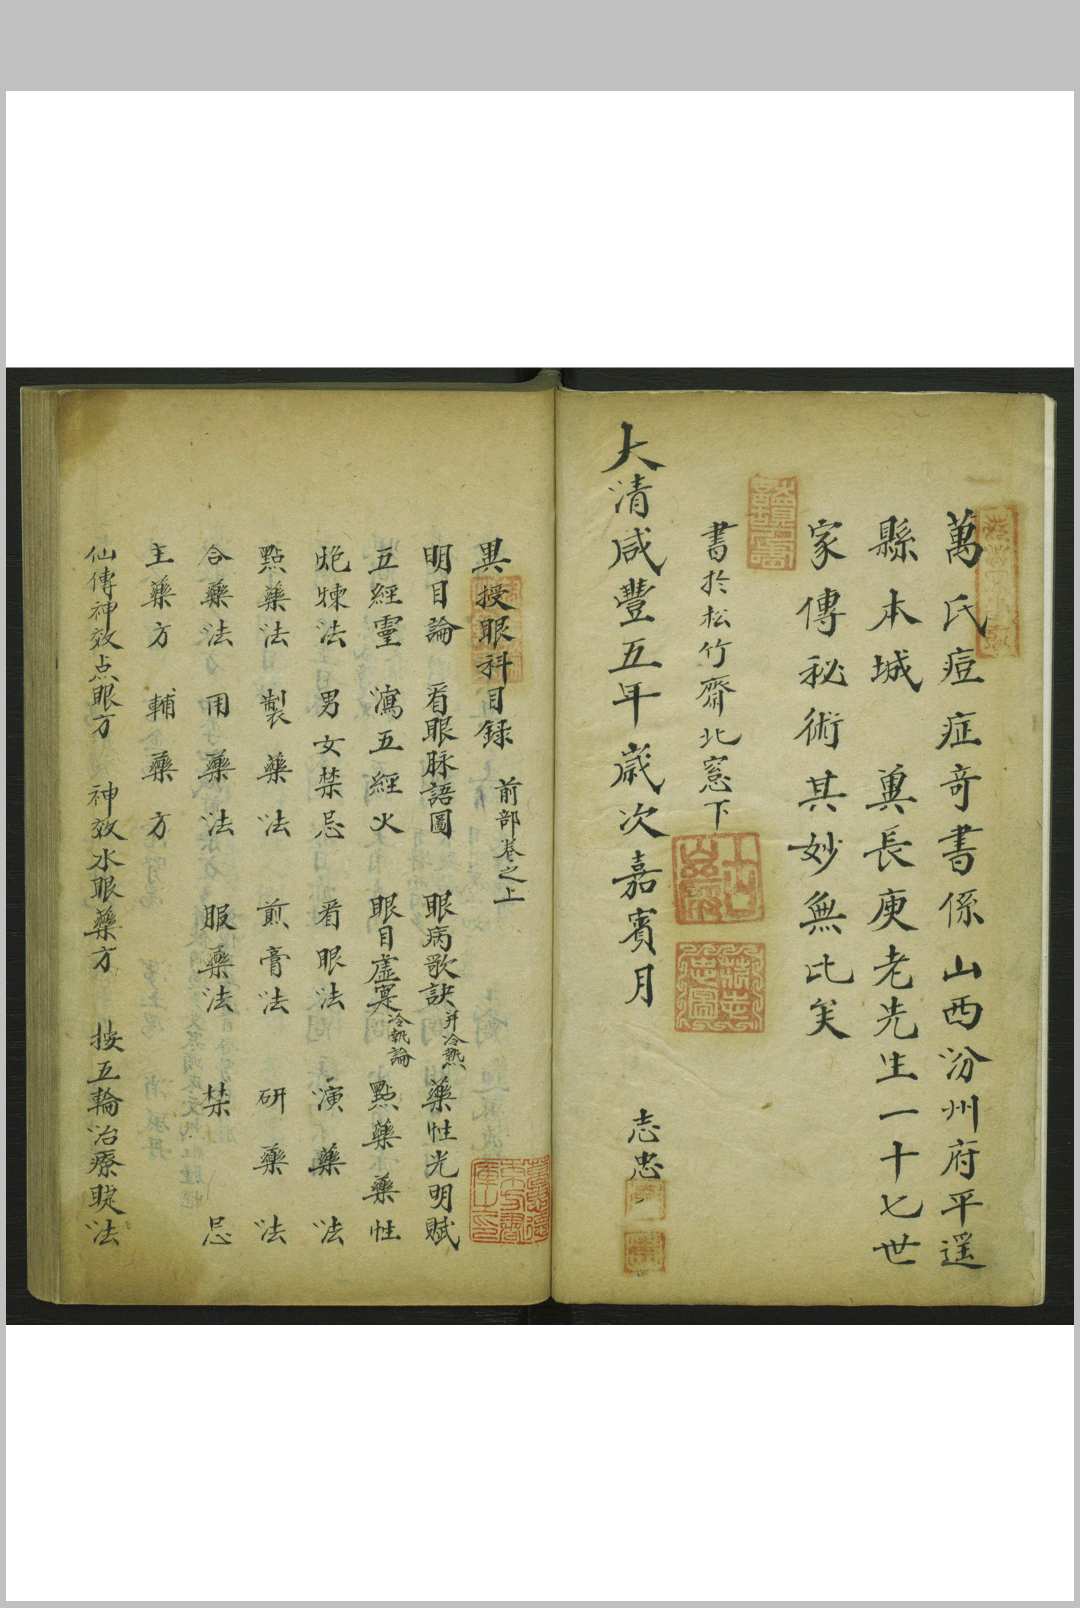 萬氏痘症奇書係山西汾州府平遥
縣本城 冀長庚老先生一十七世
家傳秘術其妙無比矣
書於松竹齋北窓下
大清咸豐五年歲次嘉賓月 志忠
異授眼科目録 前部卷之上
明目論 看眼脉語圖 眼病歌訣并冷熱 藥性光明賦
五經靈 瀉五經火 眼目虚寔冷熱論 點藥藥性
炮煉法 男女禁忌 看眼法 演藥法
點藥法 製藥法 煎膏法 研藥法
合藥法 用藥法 服藥法 禁忌
主藥方 輔藥方
仙傳神效点眼方 神效水眼藥方 按五輪治療眼法